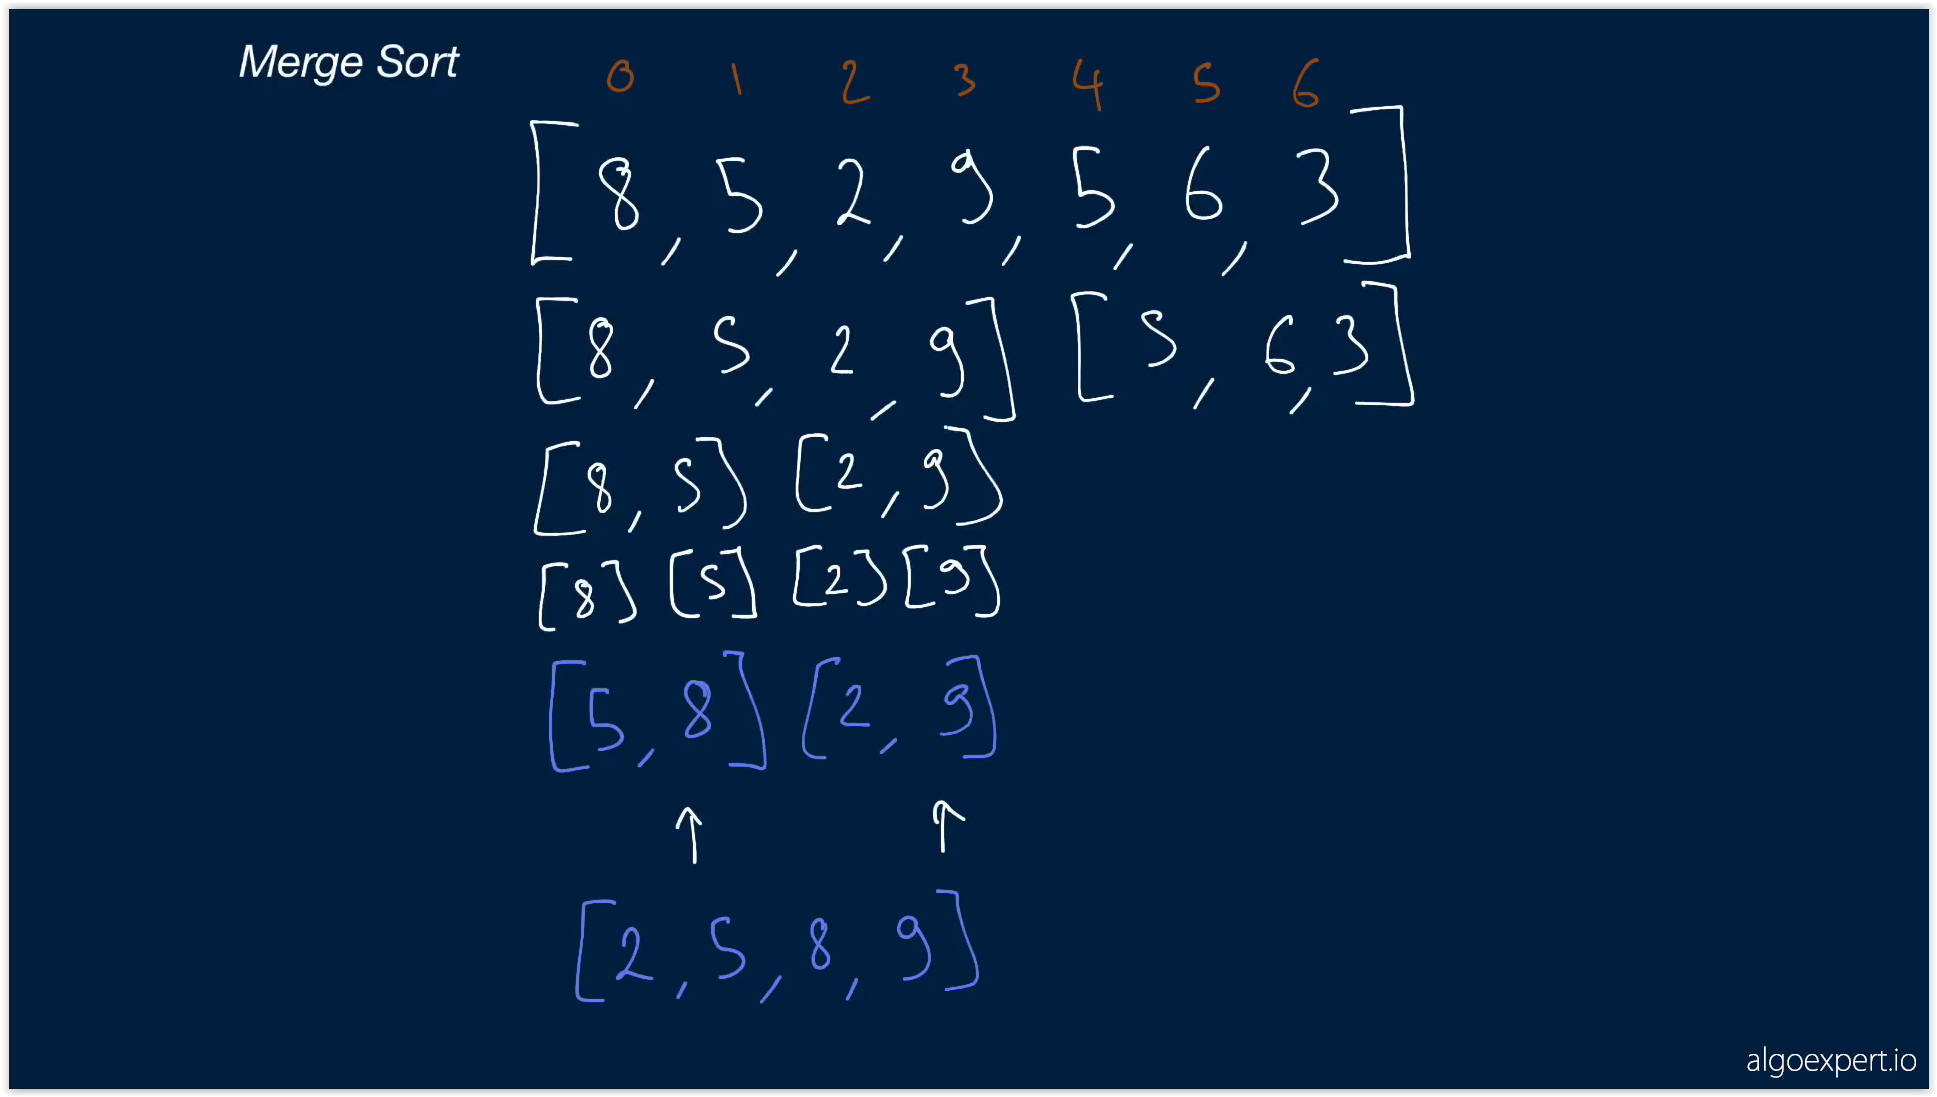 Merge Sort
0 1 2 3 4 5 6
[8, 5, 2, 9, 5, 6, 3]
[8, 5, 2, 9] [5, 6, 3]
[8, 5] [2, 9]
[8] [5] [2] [9]
[5, 8] [2, 9]
↑ ↑
[2, 5, 8, 9]
algoexpert.io